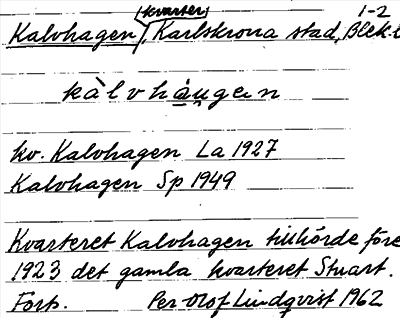 1-2
Kalvhagen, kvarter, Karlskrona stad, Blek
kàlvhà̱gen
kv. Kalvhagen La 1927
Kalvhagen Sp 1949
Kvarteret Kalvhagen tillhörde före
1923 det gamla kvarteret Stuart.
Forts. Per Olof Lindqvist 1962